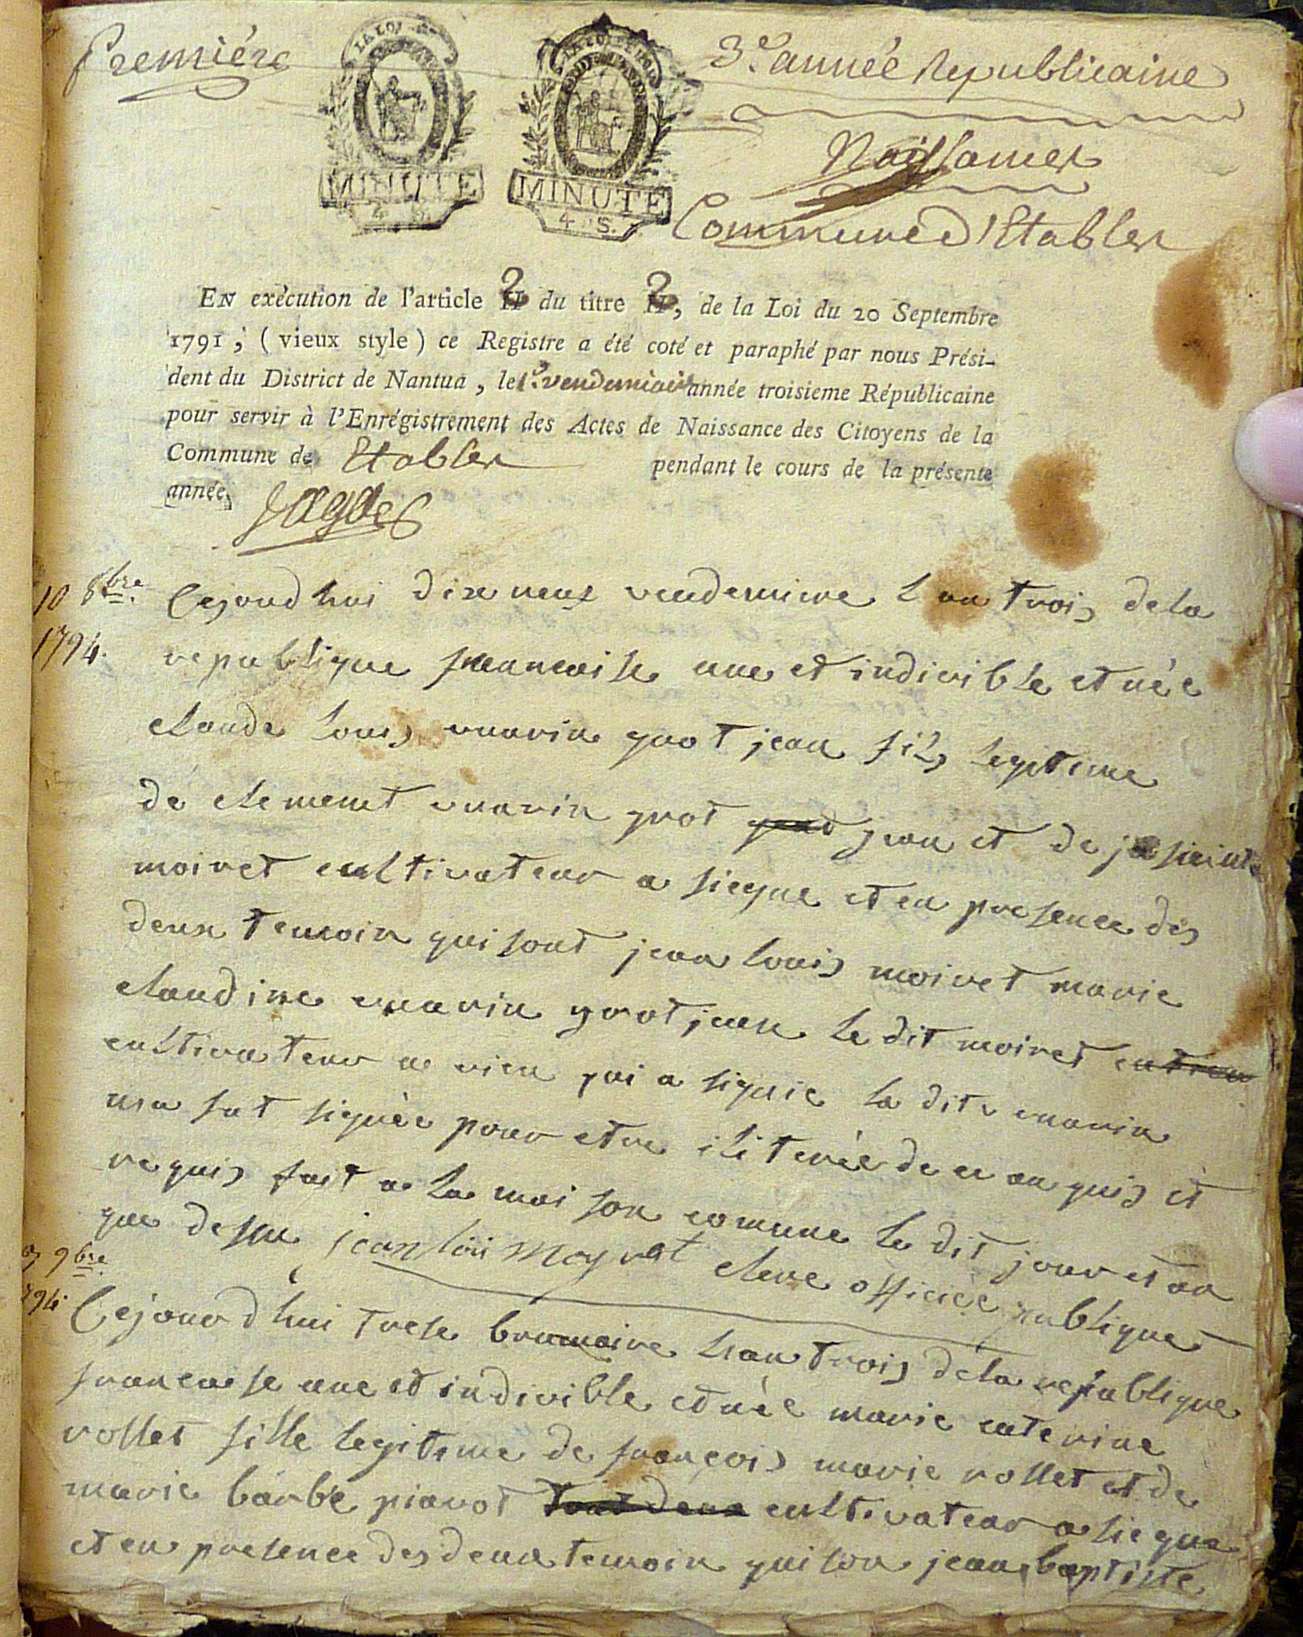 Premiére
3e. année Republicaine
LA LOI
LA LOI
MINUTE
4. S.
MINUTE
4. S.
Naissances
Commune d'Etables
EN exècution de l'article 2 du titre 2, de la Loi du 20 Septembre
1791, (vieux style) ce Registre a été coté et paraphé par nous Prési-
dent du District de Nantua, le 1er. vendemiaire année troisieme Républicaine
pour servir à l'Enrégistrement des Actes de Naissance des Citoyens de la
Commune de Etables pendant le cours de la présente
année,
10 8bre.
1794.
Cejourd hui dix neuf vendemiere l'an trois de la
republique francaise une et indivible et née
claude louis vuarin grot jean fils legitime
de clement vuarin grot jean et de jasieinte
moiret cultivateur a siegne et en presence des
deux temoin qui sont jean louis moiret marie
claudine vuarin grot jean le dit moiret
cultivateur a vieu qui a signie la dite vuarin
na fat signèe pour etre iliterée de ce anquis et
requis fait a la maison comune le dit jour et an
que dessu jean loui Moyret clerc officiée publique
9bre.
794.
Cejourd hui trese brumaire l'an trois de la republique
francaise une et indivible et née marie caterine
rollet fille legitime de françois marie rollet et de
marie barbe piarot cultivateur a siegne
et en presence des deux temoin qui son jean baptiste